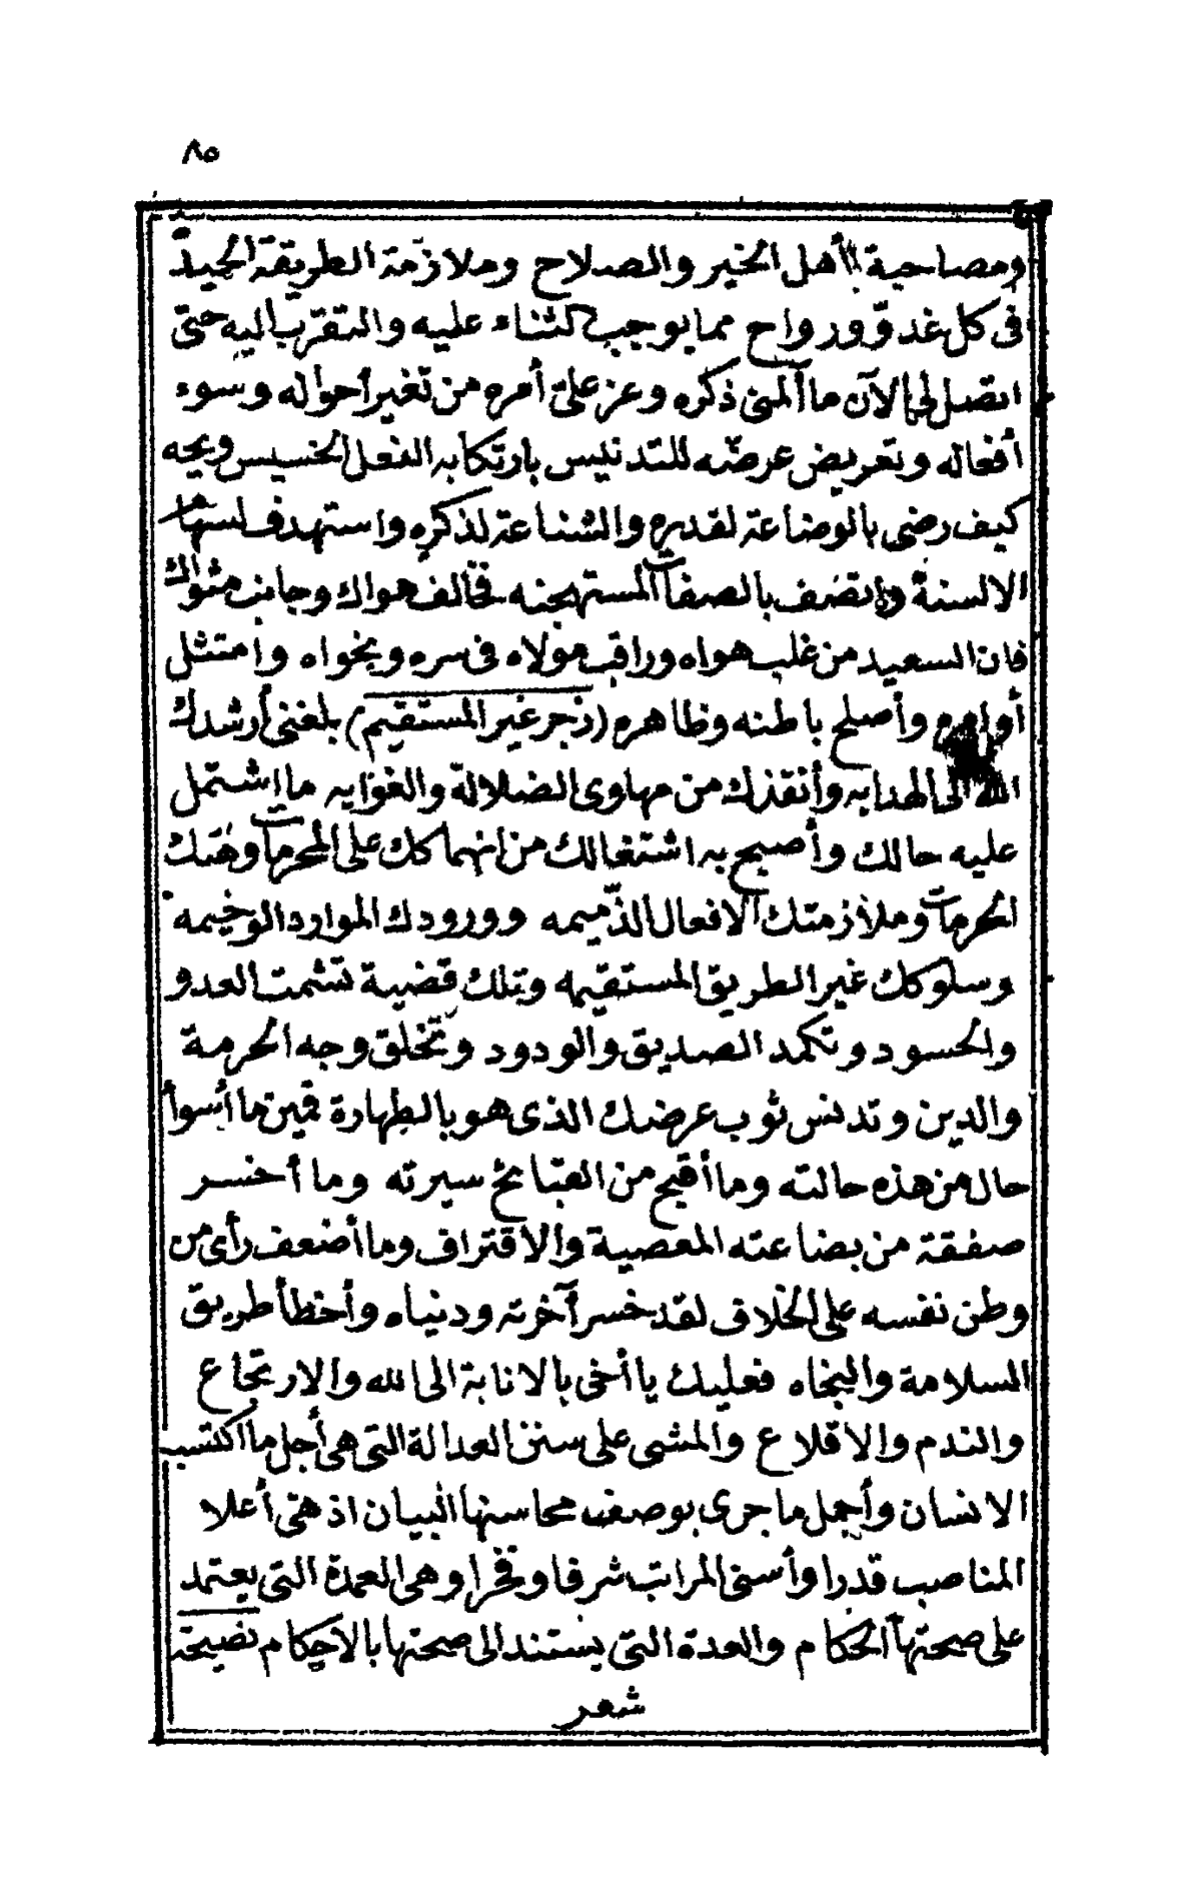 ٨٥
ومصاحبة أهل الخير والصلاح وملازمة الطريقة الحميدة
فى كل غدوّ ورواح مما يوجب الثناء عليه والتقرّب اليه حتى
اتصل لى الآن ما ألمنى ذكره وعز علىّ أمره من تغير أحواله وسوء
أفعاله وتعريض عرضه للتدنيس بارتكابه الفعل الخسيس ويحه
كيف رضى بالوضاعة لقدره والشناعة لذكره واستهدف لسهام
الالسنة واتصف بالصفات المستهجنه فخالف هواك وجانب مثواك
فان السعيد من غلب هواه وراقب مولاه فى سره ونجواه وامتثل
أوامره وأصلح باطنه وظاهره (زجر غير المستقيم) بلغنى أرشدك
الله الى الهدايه وأنقذك من مهاوى الضلالة والغوايه ما اشتمل
عليه حالك وأصبح به اشتغالك من انهماكك على المحرمات وهتك
الحرمات وملازمتك الافعال الذّميمه وورودك الموارد الوخيمه
وسلوكك غير الطريق المستقيمه وتلك قضية تشمت العدو
والحسود وتكمد الصديق والودود وتخلق وجه الحرمة
والدين وتدنس ثوب عرضك الذى هو بالطهارة قمين ما أسوأ
حال من هذه حالته وما أقبح من القبائح سيرته وما أخسر
صفقة من بضاعته المعصية والاقتراف وما أضعف رأى من
وطن نفسه على الخلاف لقد خسر آخرته ودنياه وأخطأ طريق
السلامة والنجاه فعليك يا أخى بالانابة الى الله والارتجاع
والندم والاقلاع والمشى على سنن العدالة التى هى أجل ما اكتسب
الانسان وأجمل ما جرى بوصف محاسنها البيان اذ هى أعلا
المناصب قدرا وأسنى المراتب شرفا وفخرا وهى العمدة التى يعتمد
على صحتها الحكام والعدة التى يستند الى صحتها بالاحكام نصيحة
شعر